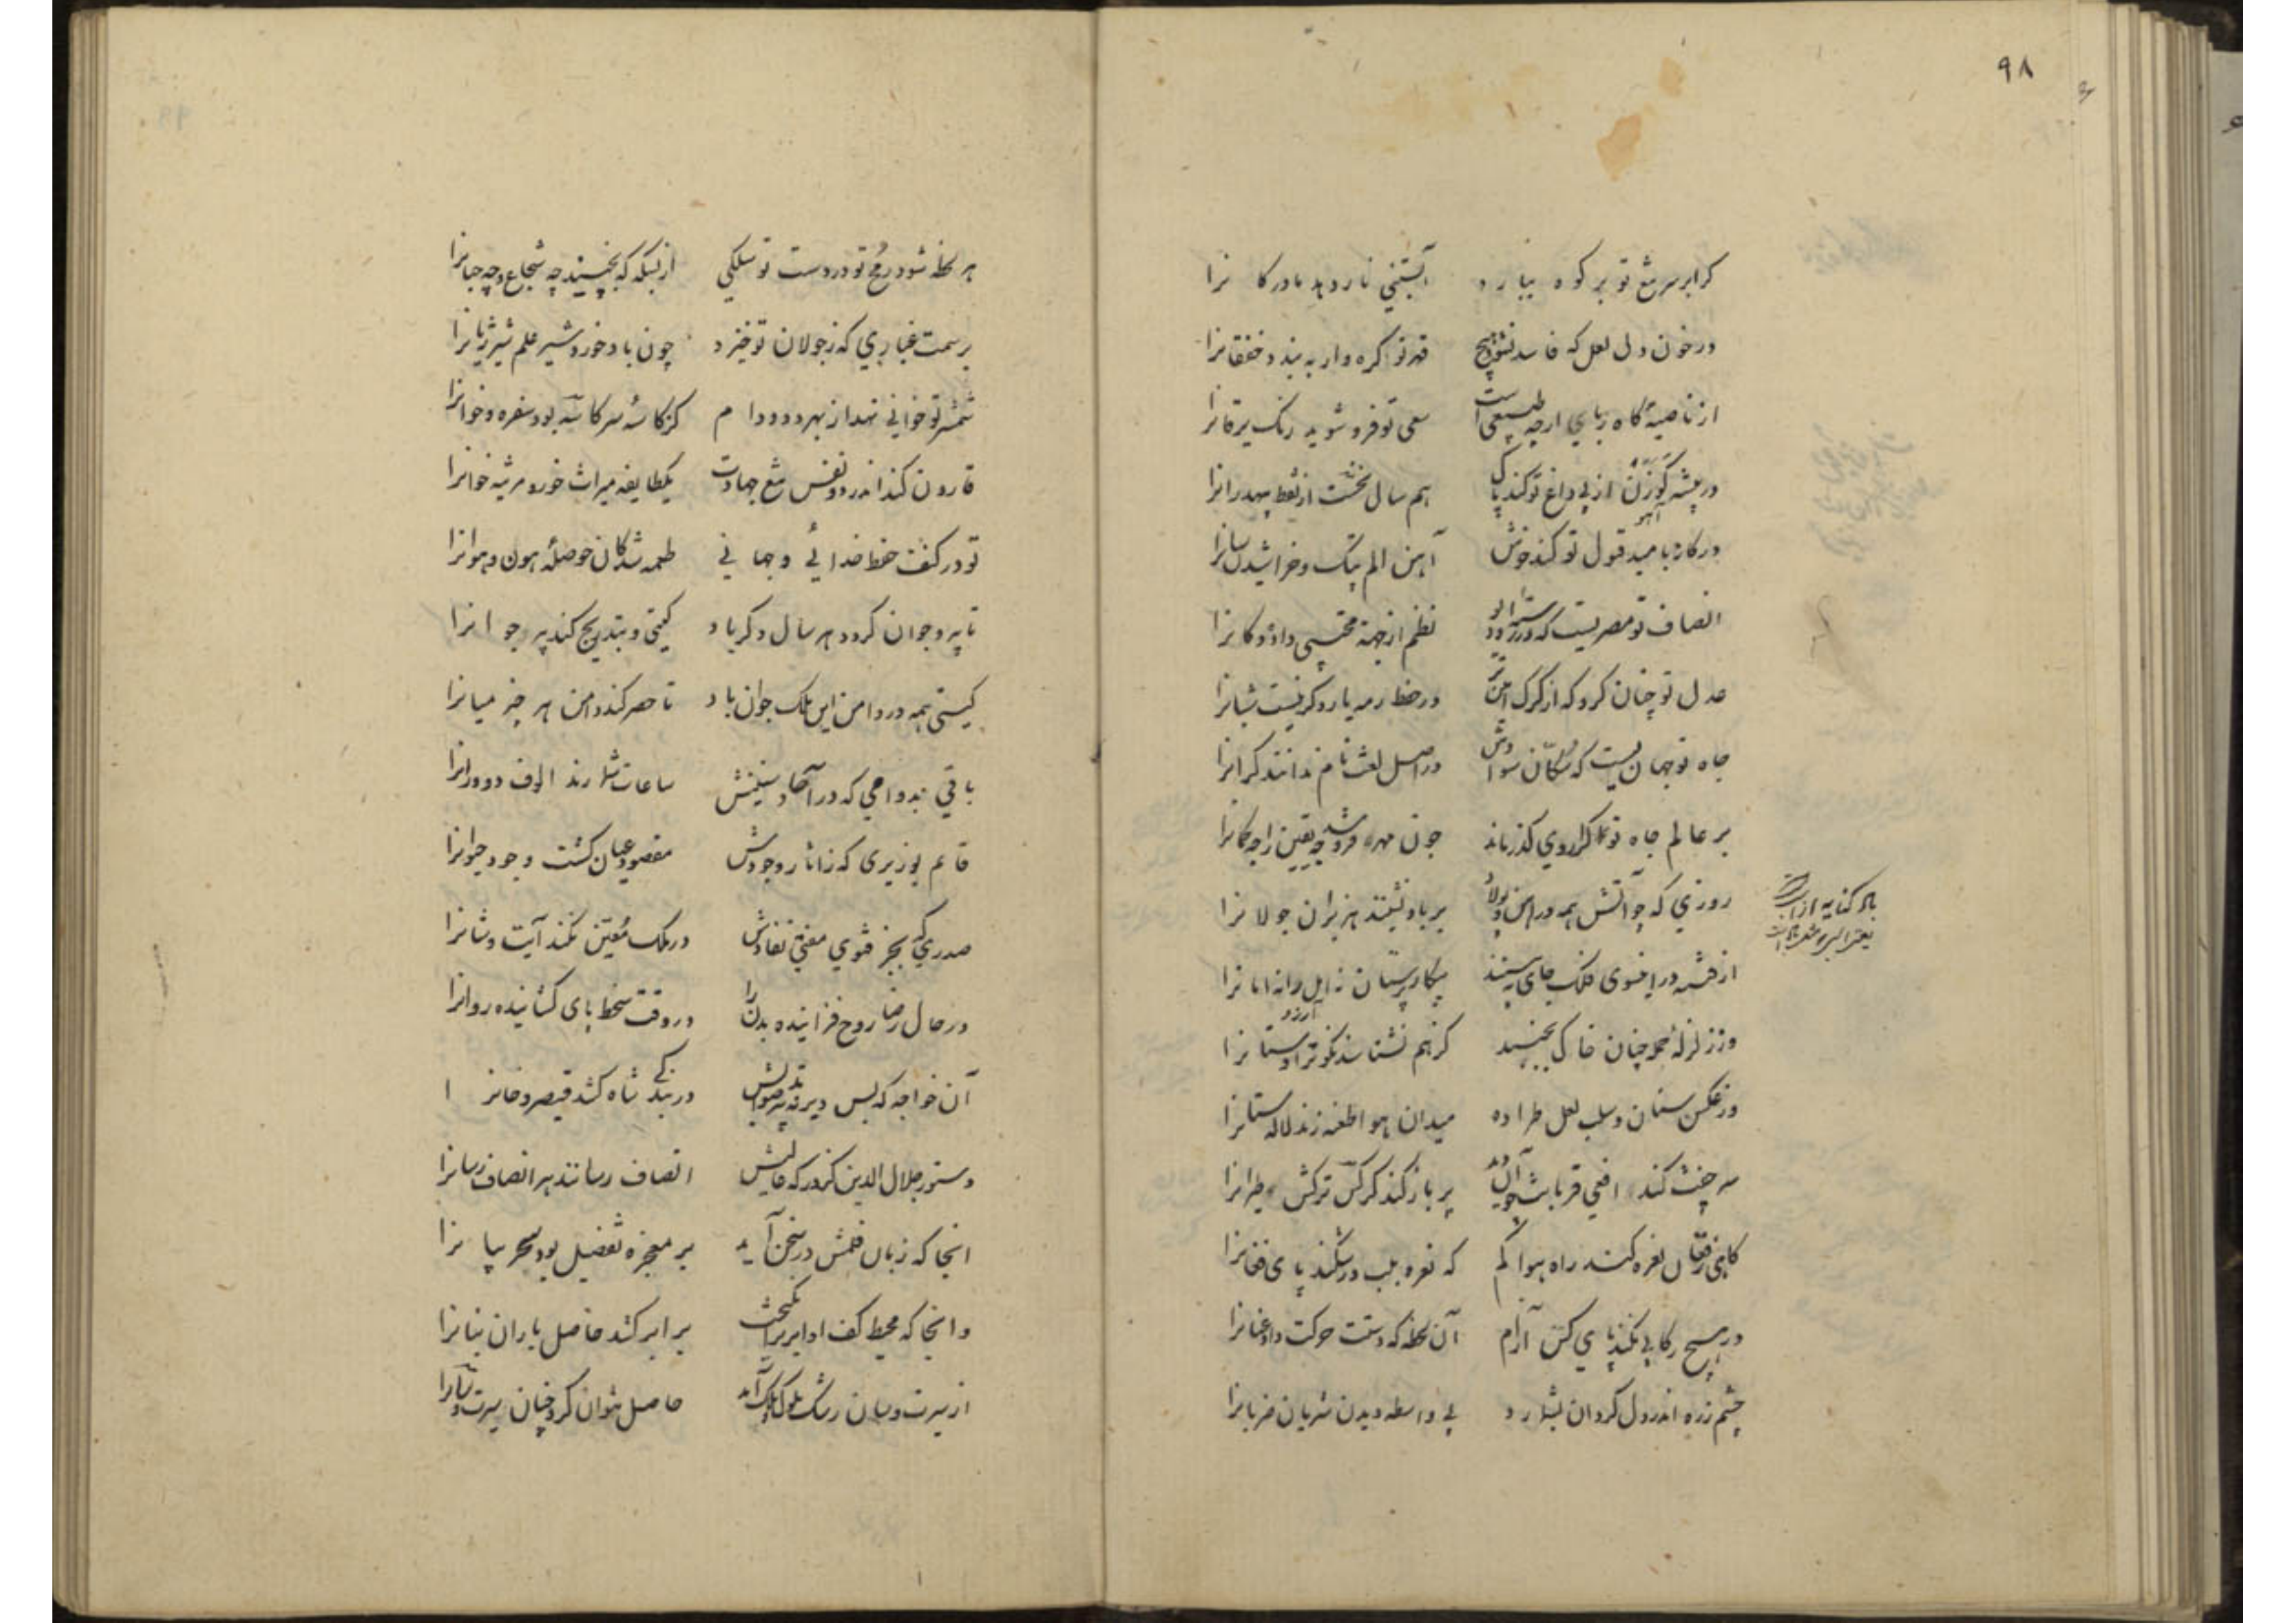 ۹۸
کر ابر سر تیغ تو بر کوه ببارد آبستنی نار دهد مادر کانرا
در خون دل لعل که فاسد نشود هیچ قهر تو کره وار ببیند خفقانرا
از ناصیهٔ کاه ربای ارچه طبیعی است سعی تو فرو شوید رنک یرقانرا
در بیشه کوزن از پی داغ تو کند پاک هم سال نخست از نقط بیهده رانرا
در کاره بامید قبول تو کند خوش آهن الم پتک و خراشیدن سانرا
انصاف تو مصریست که در رستهٔ او دیو نظم از جهة محتسبی داد دکانرا
عدل تو چنان کرد که از کرک امین تر در حفظ رمه یار دکر نیست شبانرا
جاه تو جهانیست که سکان سوادش در اصل لغت نام ندانند کرانرا
بر عالم جاه تو کرا روی کذر ماند چون مهره فرو شد چه یقین را چه کمانرا
روزی که چو آتش همه در آهن و پولاد بر باد نشینند هزبران جولانرا
از فتنه درین سوی فلک جای نبینند پیکار پرستان نه امل را نه امانرا
وز زلزلهٔ حمله چنان خاک بجنبد کز هم نشناسند نکون را و ستانرا
وز عکس سنان و سلب لعل طراده میدان هوا طعنه زند لاله ستانرا
سر جفت کند افعی قربان و آن پر باز کند کرکس ترکش طیرانرا
کاهی ز فغان نعره کند راه هوا کم که نعره بلب در شکند پای فغانرا
در هیچ رکابی نکند پای کس آرام آن لحظه که دستت حرکت داد عنانرا
چشم زره اندر دل کردان بشمارد بی واسطه دیدن شریان ضربانرا
هر لحظه شود رمح تو در دست تو سلکی از بسکه که بجنبد چه شجاع و چه جبانرا
بر سمت غباری که ز جولان تو خیزد چون باد خورد شیر علم شیر ژیانرا
شمشیر تو خوانی نهد از بهر دد و دام کز کاسهٔ سر کاسه بود سفره و خوانرا
قارون کند اندر دو نفس تیغ جهادت یک طایفه میراث خور و مرثیه خوانرا
تو در کنف حفظ خدائی و جهانی طعمه شدکان حوصلهٔ هون و هوانرا
تا پیر و جوان کردد هر سال دکر باد کیتی و بتدریج کند پیر جوانرا
کیتی همه در دامن این ملک جوان باد تا حصر کند دامن هر چیز میانرا
باقی بدوامی که در آحاد سنینش ساعات شمارند الوف دورانرا
قایم بوزیری که ز آثار وجودش مقصود عیان کشت وجود حیوانرا
صدری که بجز فتوی مفتی نفاذش در ملک معین نکند آیت و شانرا
در حال رضا روح فزاینده بدن را در وقت سخط پای کشاینده روانرا
آن خواجه که بس دیر نه تدبیر صوابش در بندکی شاه کشد قیصر و خانرا
دستور جلال الدین کز درکه عالیش انصاف رسانند هر انصاف رسانرا
انجا که زبان قلمش در سخن آید بر معجزه تفضیل بود سحر بیانرا
وانجا که محیط کف او ابر برانکیخت بر ابر کشد حاصل باران بنانرا
از سیرت و سان رشک ملوک و ملک آمد حاصل نتوان کرد چنان سیرت و سانرا